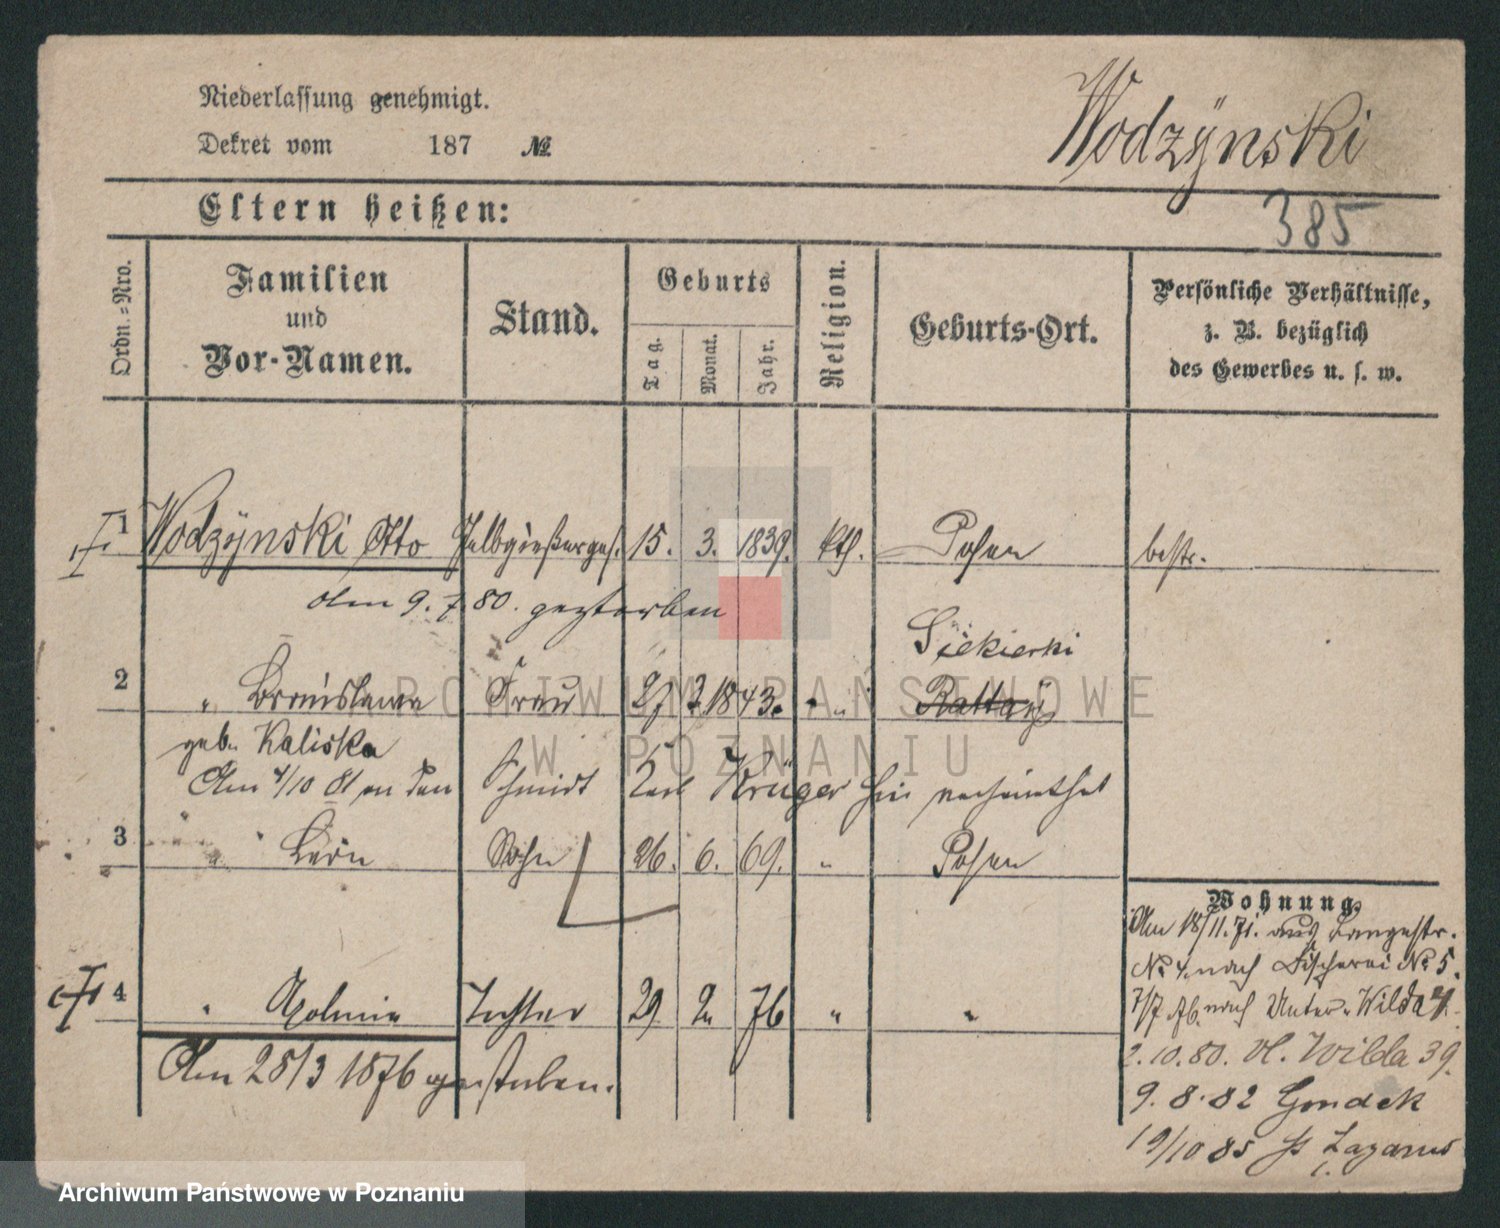 Niederlassung genehmigt.
Wodzÿnski
Dekret vom 187 №
Eltern heißen:
385
Ordn.=Nro.
Familien
und
Vor-Namen.
Stand.
Geburts
Tag.
Monat.
Jahr.
Religion.
Geburts-Ort.
Persönliche Verhältnisse,
z. B. bezüglich
des Gewerbes u. s. w.
1 Wodzÿnski Otto Gelbgießerges. 15. 3. 1839. kth. Posen bestr.
Am 9. 7. 80. gestorben
Siekierki
2 " Bronislawa Frau 27 1843. " Rattay
geb. Kaliska
Am 4/10 81 an den Schmidt Karl Krüger hier verheirathet
3 " " Leon Sohn 26. 6. 69. " Posen
Wohnung.
Am 18/11. 71. aus Langestr.
No 4. nach Fischerei No 5.
7/7. 76. nach Unter-Wilda 21.
4 " Apolonia Tochter 29 2 76 " "
2.10.80. Wilda 39.
Am 28/3 1876 gestorben.
9. 8. 82 Gondek
19/10 85 St Lazarus
ARCHIWUM PAŃSTWOWE
W POZNANIU
Archiwum Państwowe w Poznaniu